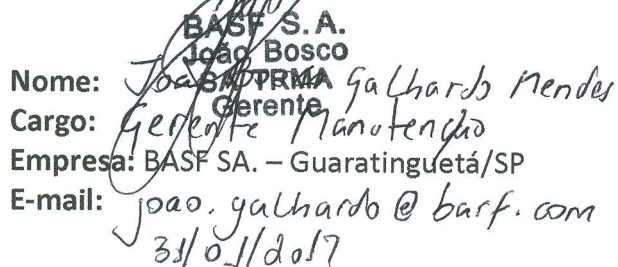 BASF S.A.
João Bosco
Gerente
Nome: Galhardo Mendes
Cargo: Gerente Manutenção
Empresa: BASF SA. – Guaratinguetá/SP
E-mail: joao.galhardo@basf.com
31/01/2017